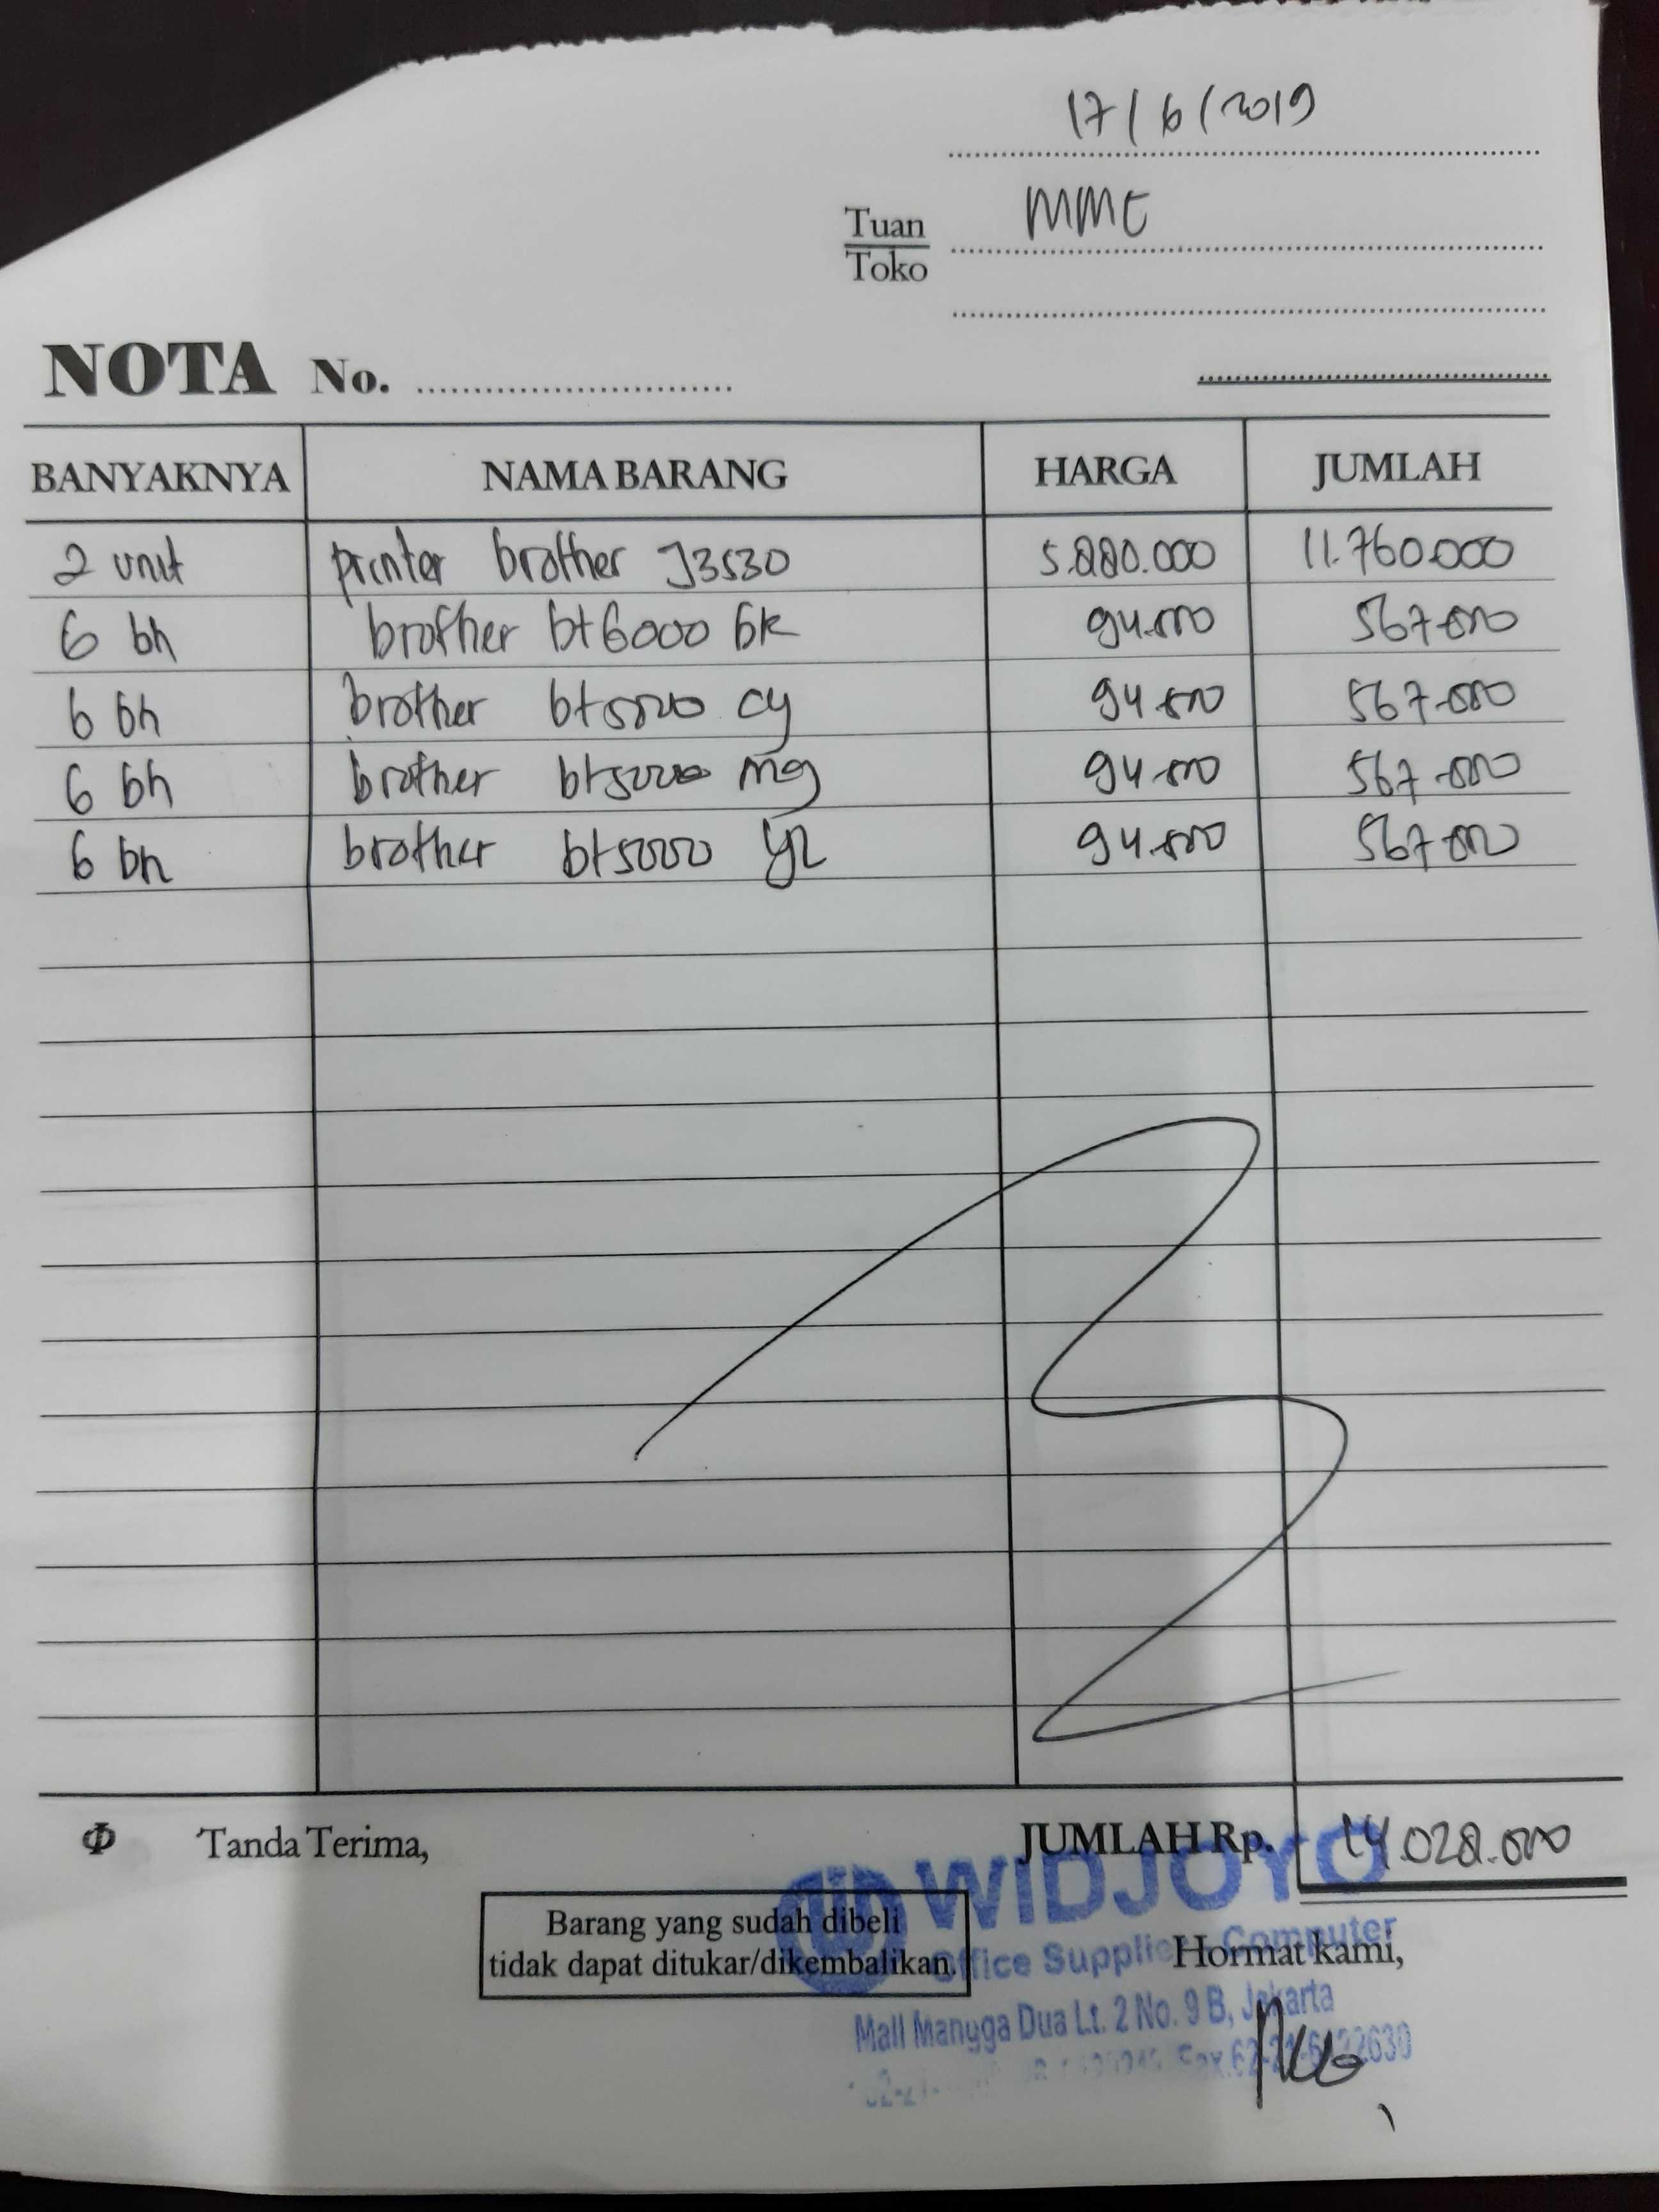 17/6/2019
Tuan MME
Toko
NOTA No.
BANYAKNYA NAMA BARANG HARGA JUMLAH
2 unit printer brother J3530 5.880.000 11.760.000
6 bh brother bt6000 bk 94.500 567.000
6 bh brother bt5000 cy 94.500 567.000
6 bh brother bt5000 mg 94.500 567.000
6 bh brother bt5000 yl 94.500 567.000
Φ Tanda Terima, JUMLAH Rp. 14.028.000
WIDJOYO
Barang yang sudah dibeli
tidak dapat ditukar/dikembalikan.
Office Supplies Computer
Hormat kami,
Mall Mangga Dua Lt. 2 No. 9 B, Jakarta
Fax.62-21-